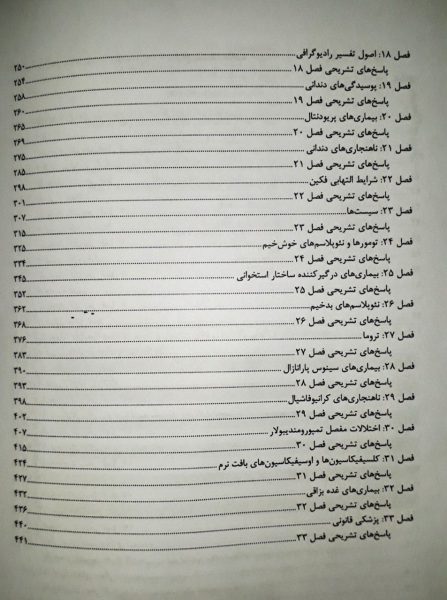 فصل ۱۸: اصول تفسیر رادیوگرافی ........ ۲۵۰
پاسخ‌های تشریحی فصل ۱۸ ........ ۲۵۴
فصل ۱۹: پوسیدگی‌های دندانی ........ ۲۵۸
پاسخ‌های تشریحی فصل ۱۹ ........ ۲۶۰
فصل ۲۰: بیماری‌های پریودنتال ........ ۲۶۵
پاسخ‌های تشریحی فصل ۲۰ ........ ۲۶۹
فصل ۲۱: ناهنجاری‌های دندانی ........ ۲۷۵
پاسخ‌های تشریحی فصل ۲۱ ........ ۲۸۵
فصل ۲۲: شرایط التهابی فکین ........ ۲۹۸
پاسخ‌های تشریحی فصل ۲۲ ........ ۳۰۱
فصل ۲۳: سیست‌ها ........ ۳۰۷
پاسخ‌های تشریحی فصل ۲۳ ........ ۳۱۵
فصل ۲۴: تومورها و نئوپلاسم‌های خوش‌خیم ........ ۳۲۵
پاسخ‌های تشریحی فصل ۲۴ ........ ۳۳۴
فصل ۲۵: بیماری‌های درگیرکننده ساختار استخوانی ........ ۳۴۵
پاسخ‌های تشریحی فصل ۲۵ ........ ۳۵۲
فصل ۲۶: نئوپلاسم‌های بدخیم ........ ۳۶۲
پاسخ‌های تشریحی فصل ۲۶ ........ ۳۶۸
فصل ۲۷: تروما ........ ۳۷۶
پاسخ‌های تشریحی فصل ۲۷ ........ ۳۸۳
فصل ۲۸: بیماری‌های سینوس پارانازال ........ ۳۹۰
پاسخ‌های تشریحی فصل ۲۸ ........ ۳۹۳
فصل ۲۹: ناهنجاری‌های کرانیوفاشیال ........ ۳۹۸
پاسخ‌های تشریحی فصل ۲۹ ........ ۴۰۲
فصل ۳۰: اختلالات مفصل تمپورومندیبولار ........ ۴۰۷
پاسخ‌های تشریحی فصل ۳۰ ........ ۴۱۵
فصل ۳۱: کلسیفیکاسیون‌ها و اوسیفیکاسیون‌های بافت نرم ........ ۴۲۴
پاسخ‌های تشریحی فصل ۳۱ ........ ۴۲۷
فصل ۳۲: بیماری‌های غده بزاقی ........ ۴۳۲
پاسخ‌های تشریحی فصل ۳۲ ........ ۴۳۶
فصل ۳۳: پزشکی قانونی ........ ۴۴۰
پاسخ‌های تشریحی فصل ۳۳ ........ ۴۴۱